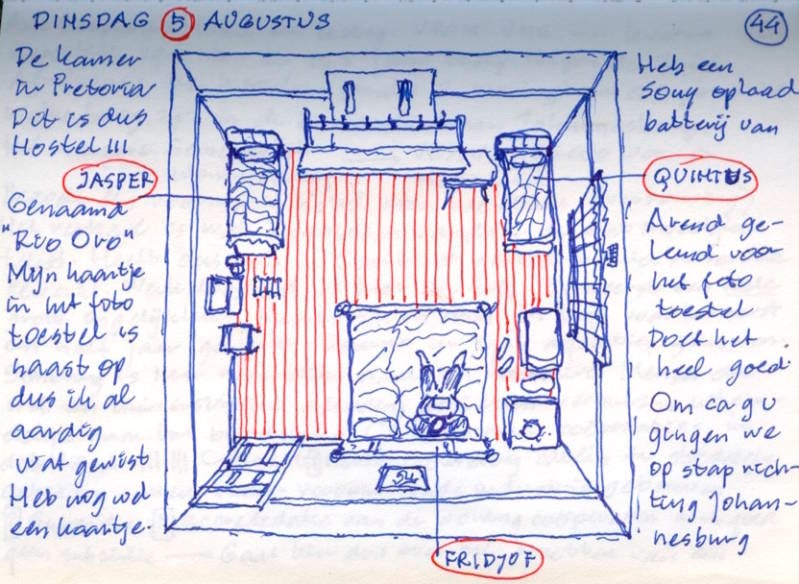 DINSDAG 5 AUGUSTUS
44
De kamer
in Pretoria
Dit is dus
Hostel III
JASPER
Genaamd
"Rvo Oro"
Mijn kaartje
in het foto
toestel is
haast op
dus ik al
aardig
wat gewist
Heb nog wel
een kaartje.
Heb een
Sony oplaad
batterij van
QUINTUS
Arend ge-
leend voor
het foto
toestel
Doet het
heel goed
Om ca 9 u
gingen we
op stap rich-
ting Johan-
nesburg
FRIDJOF